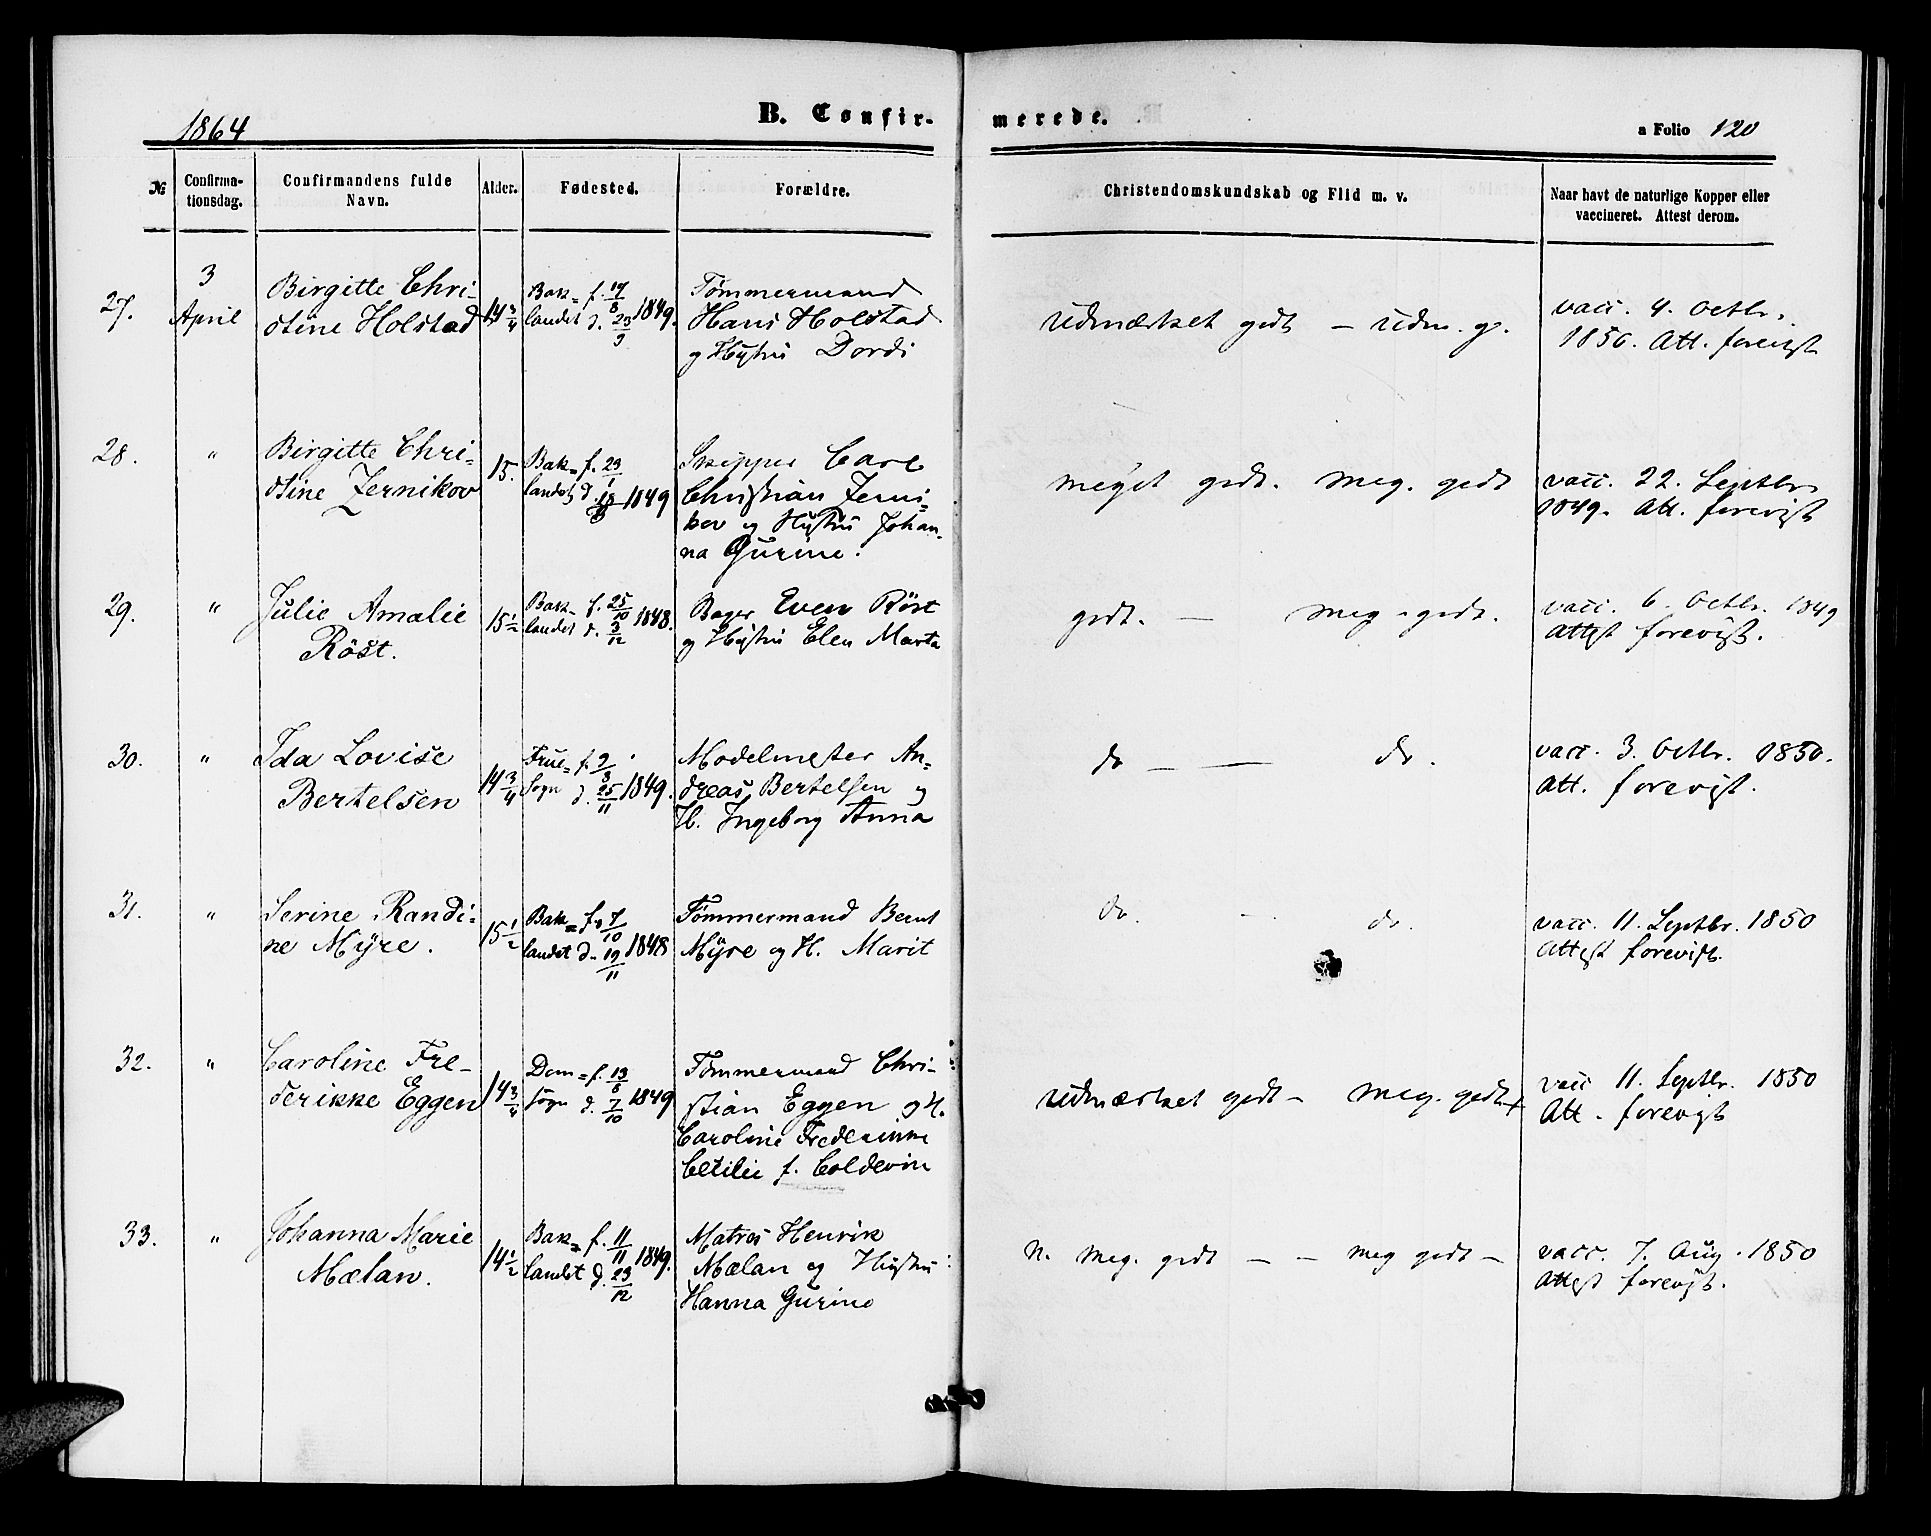 1864
B. Confir-
merede.
a Folio 120
№
Confirma-
tionsdag.
Confirmandens fulde
Navn.
Alder.
Fødested.
Forældre.
Christendomskundskab og Flid m. v.
Naar havt de naturlige Kopper eller
vaccineret. Attest derom.
27.
3
April
Birgitte Chri-
stine Holstad
14 3/4
Bak= f. 17/8
landet d. 23/9 1849.
Tømmermand
Hans Holstad
og Hustru Dordi
udmærket godt — udm. g.
vacc. 4. Octbr.
1850. Att. forevist
28.
"
Birgitte Chri-
stine Zernikov
15.
Bak= f. 23/1
landet d. 1849
Skipper Carl
Christian Zerni-
kov og Hustru Johan-
na Gurine.
meget godt. meg. godt
vacc. 22. Septbr.
1849. Att. forevist
29.
"
Julie Amalie
Röst.
15 1/2
Bak- f. 25/10
landet d. 3/12 1848.
Bager Even Röst
og Hustru Elen Marta
godt. — meg. godt.
vacc. 6. Octbr. 1849
Attest forevist.
30.
"
Ida Lovise
Bertelsen
14 3/4
Frue= f. 9/8
Sogn d. 25/11 1849.
Modelmester An-
dreas Bertelsen og
H. Ingeborg Anna
do — — do.
vacc. 3. Octbr. 1850.
Att. forevist.
31.
"
Serine Randi-
ne Mÿre.
15 1/2
Bak= f. 7/10
landet d. 19/11 1848
Tømmermand Bernt
Mÿre og H. Marit
do. — do.
vacc. 11. Septbr. 1850
Attest forevist.
32.
"
Caroline Fre-
derikke Eggen
14 3/4
Dom= f. 13/8
sogn d. 7/10 1849
Tømmermand Chri-
stian Eggen og H.
Caroline Frederikke
Cecilie f. Coldevin
udmærket godt - meg. godt +
vacc 11. Septbr. 1850
Att. forevist
33.
"
Johanna Marie
Mælan.
14 1/2
Bak= f. 11/11
landet d. 23/12 1849.
Matros Henrik
Mælan og Hustru
Hanna Gurine
n. meg. godt — — meg godt —
vacc. 7. Aug. 1850
Attest forevist.